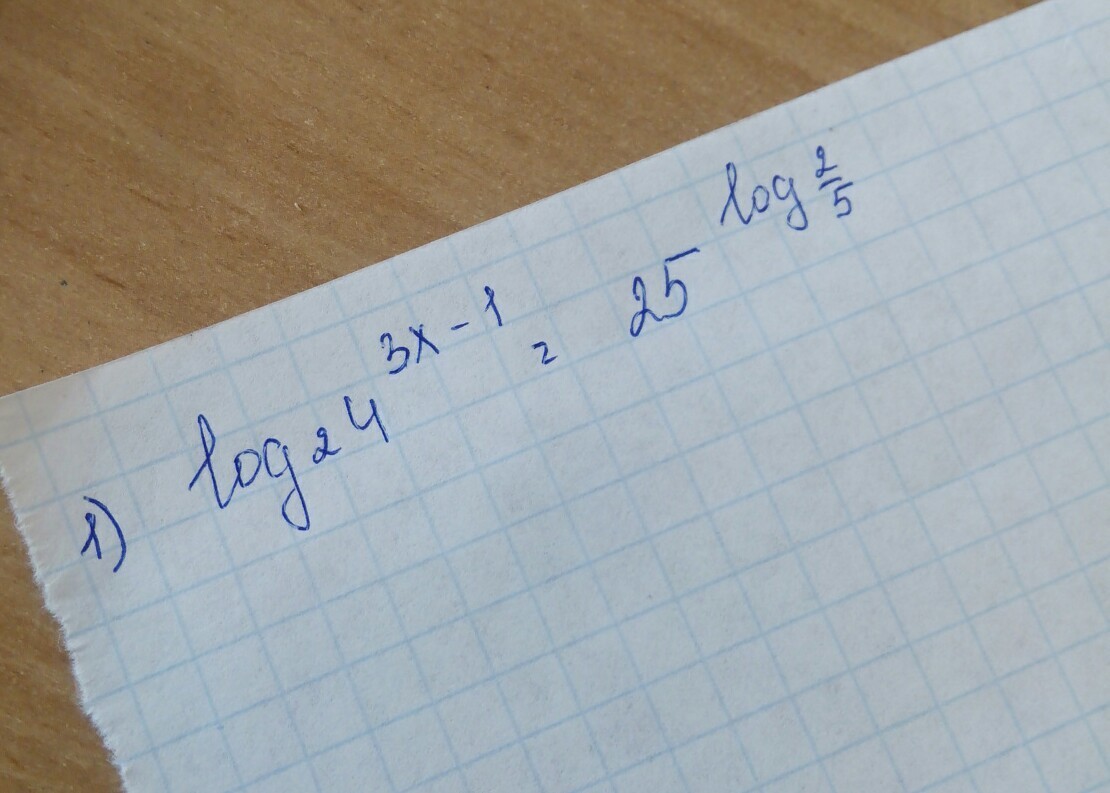 1) log₂4^(3x-1) = 25^(log 2/5)